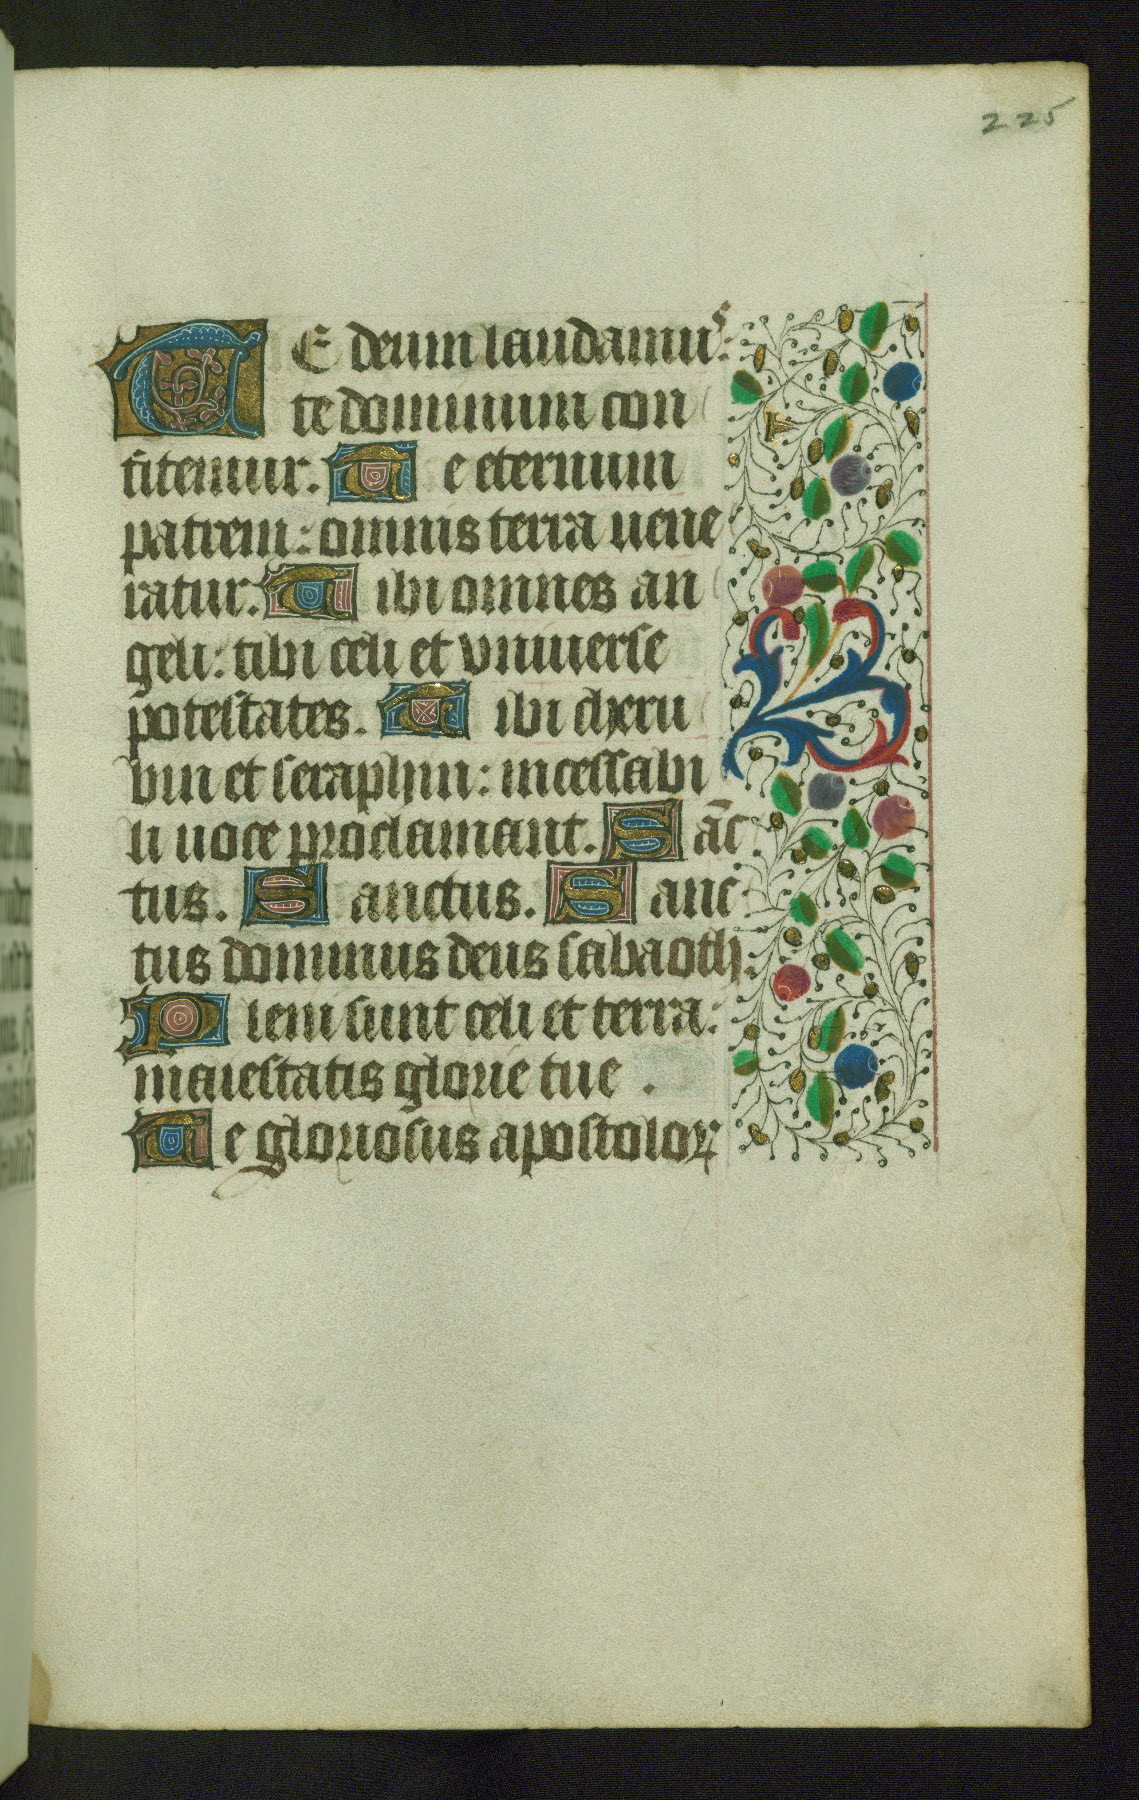 225
TE deum laudamus:
te dominum con
fitemur. Te eternum
patrem: omnis terra uene
ratur. Tibi omnes an
geli: tibi celi et vniuerse
potestates. Tibi cheru
bin et seraphin: incessabi
li uoce proclamant. Sāc
tus. Sanctus. Sanc
tus dominus deus sabaoth.
Pleni sunt celi et terra:
maiestatis glorie tue.
Te gloriosus apostoloꝝ